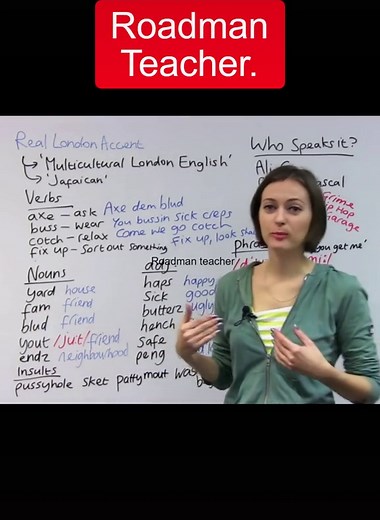 Roadman
Teacher.
Real London Accent
Who Speaks it?
'Multicultural London English'
'Jafaican'
Ali G
Rascal
Verbs
Grime
Hip Hop
Garage
axe – ask Axe dem blud
buss – wear You bussin sick creps
cotch – relax Come we go cotch
fix up – sort out something Fix up, look
phra
you get me'
Roadman teacher
Nouns
adj
yard house
haps happy
fam friend
sick good
blud friend
butterz ugly
yout /ju:t/ friend
hench
endz neighbourhood
safe
peng
Insults
pussyhole sket pattymout